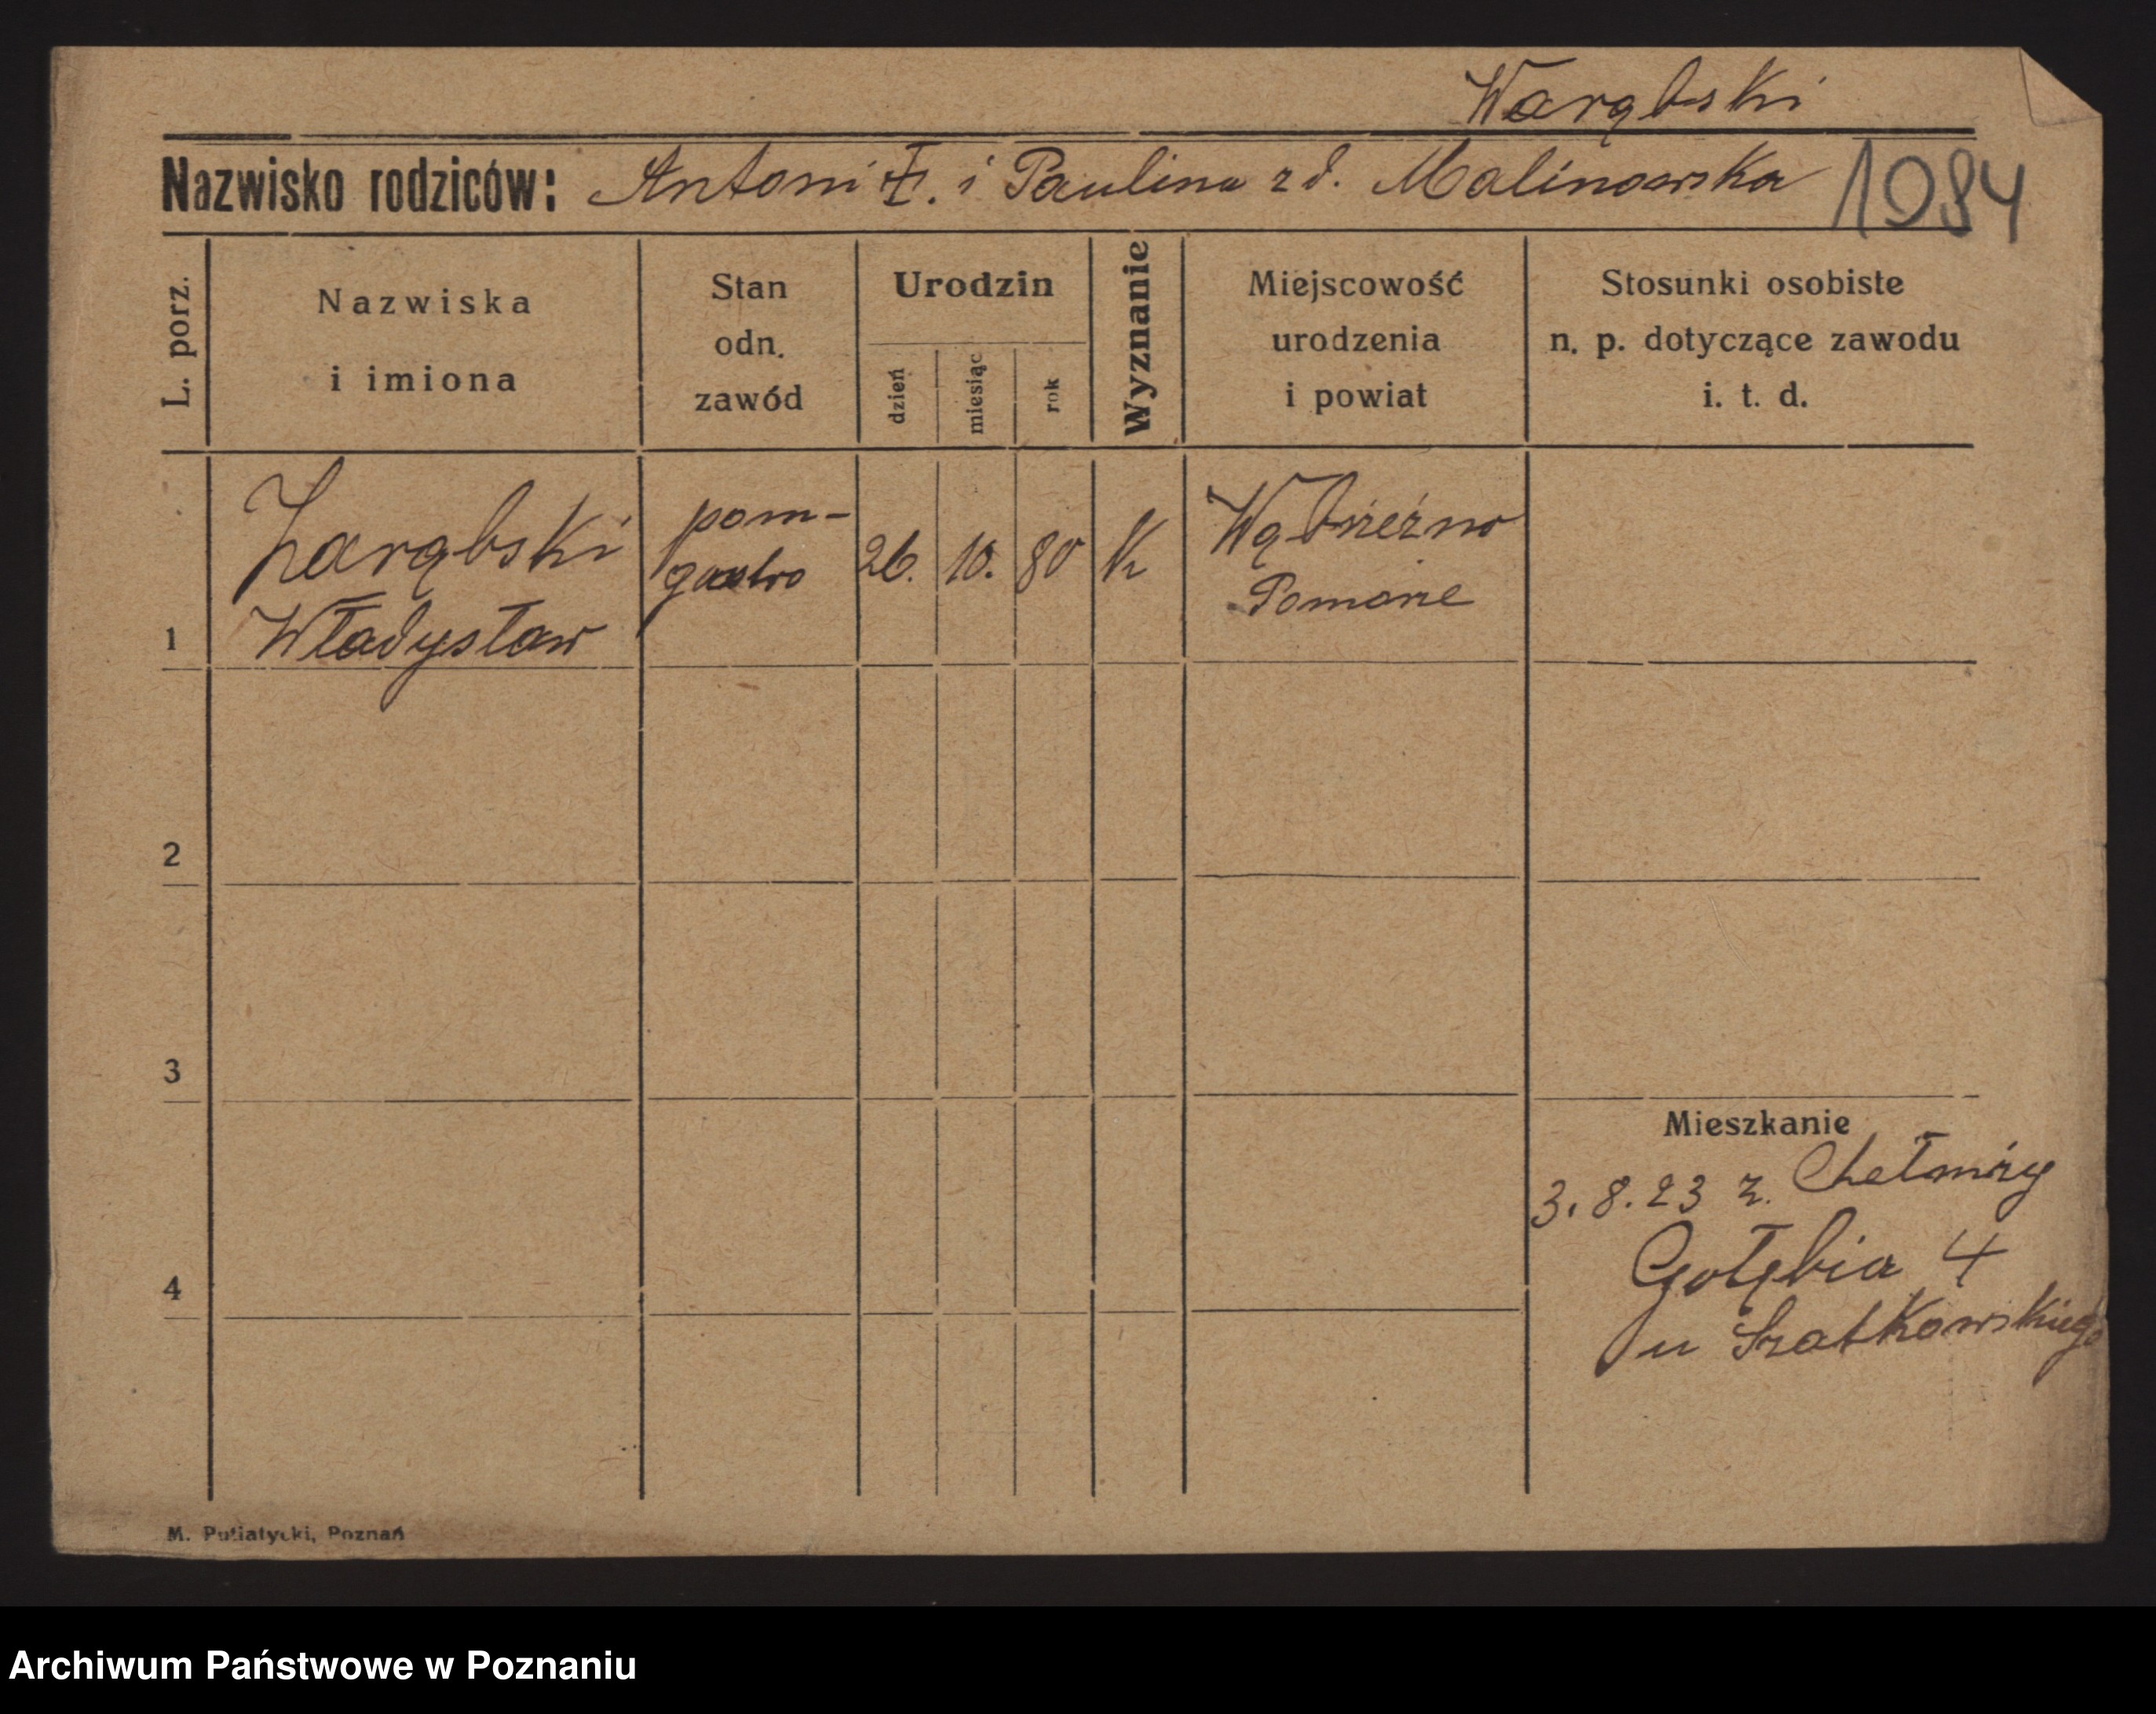 Warąbski
Nazwisko rodziców: Antoni Z. i Paulina zd. Malinowska 1084
L. porz.
Nazwiska
i imiona
Stan
odn.
zawód
Urodzin
dzień
miesiąc
rok
Wyznanie
Miejscowość
urodzenia
i powiat
Stosunki osobiste
n. p. dotyczące zawodu
i. t. d.
1
Zarąbski
Władysław
pom-
gastro
26.
10.
80
K
Wąbrzeźno
Pomorze
2
3
4
Mieszkanie
3.8.23 z. Chełmży
Gołębia 4
u Szatkowskiego
M. Putiatycki, Poznań
Archiwum Państwowe w Poznaniu